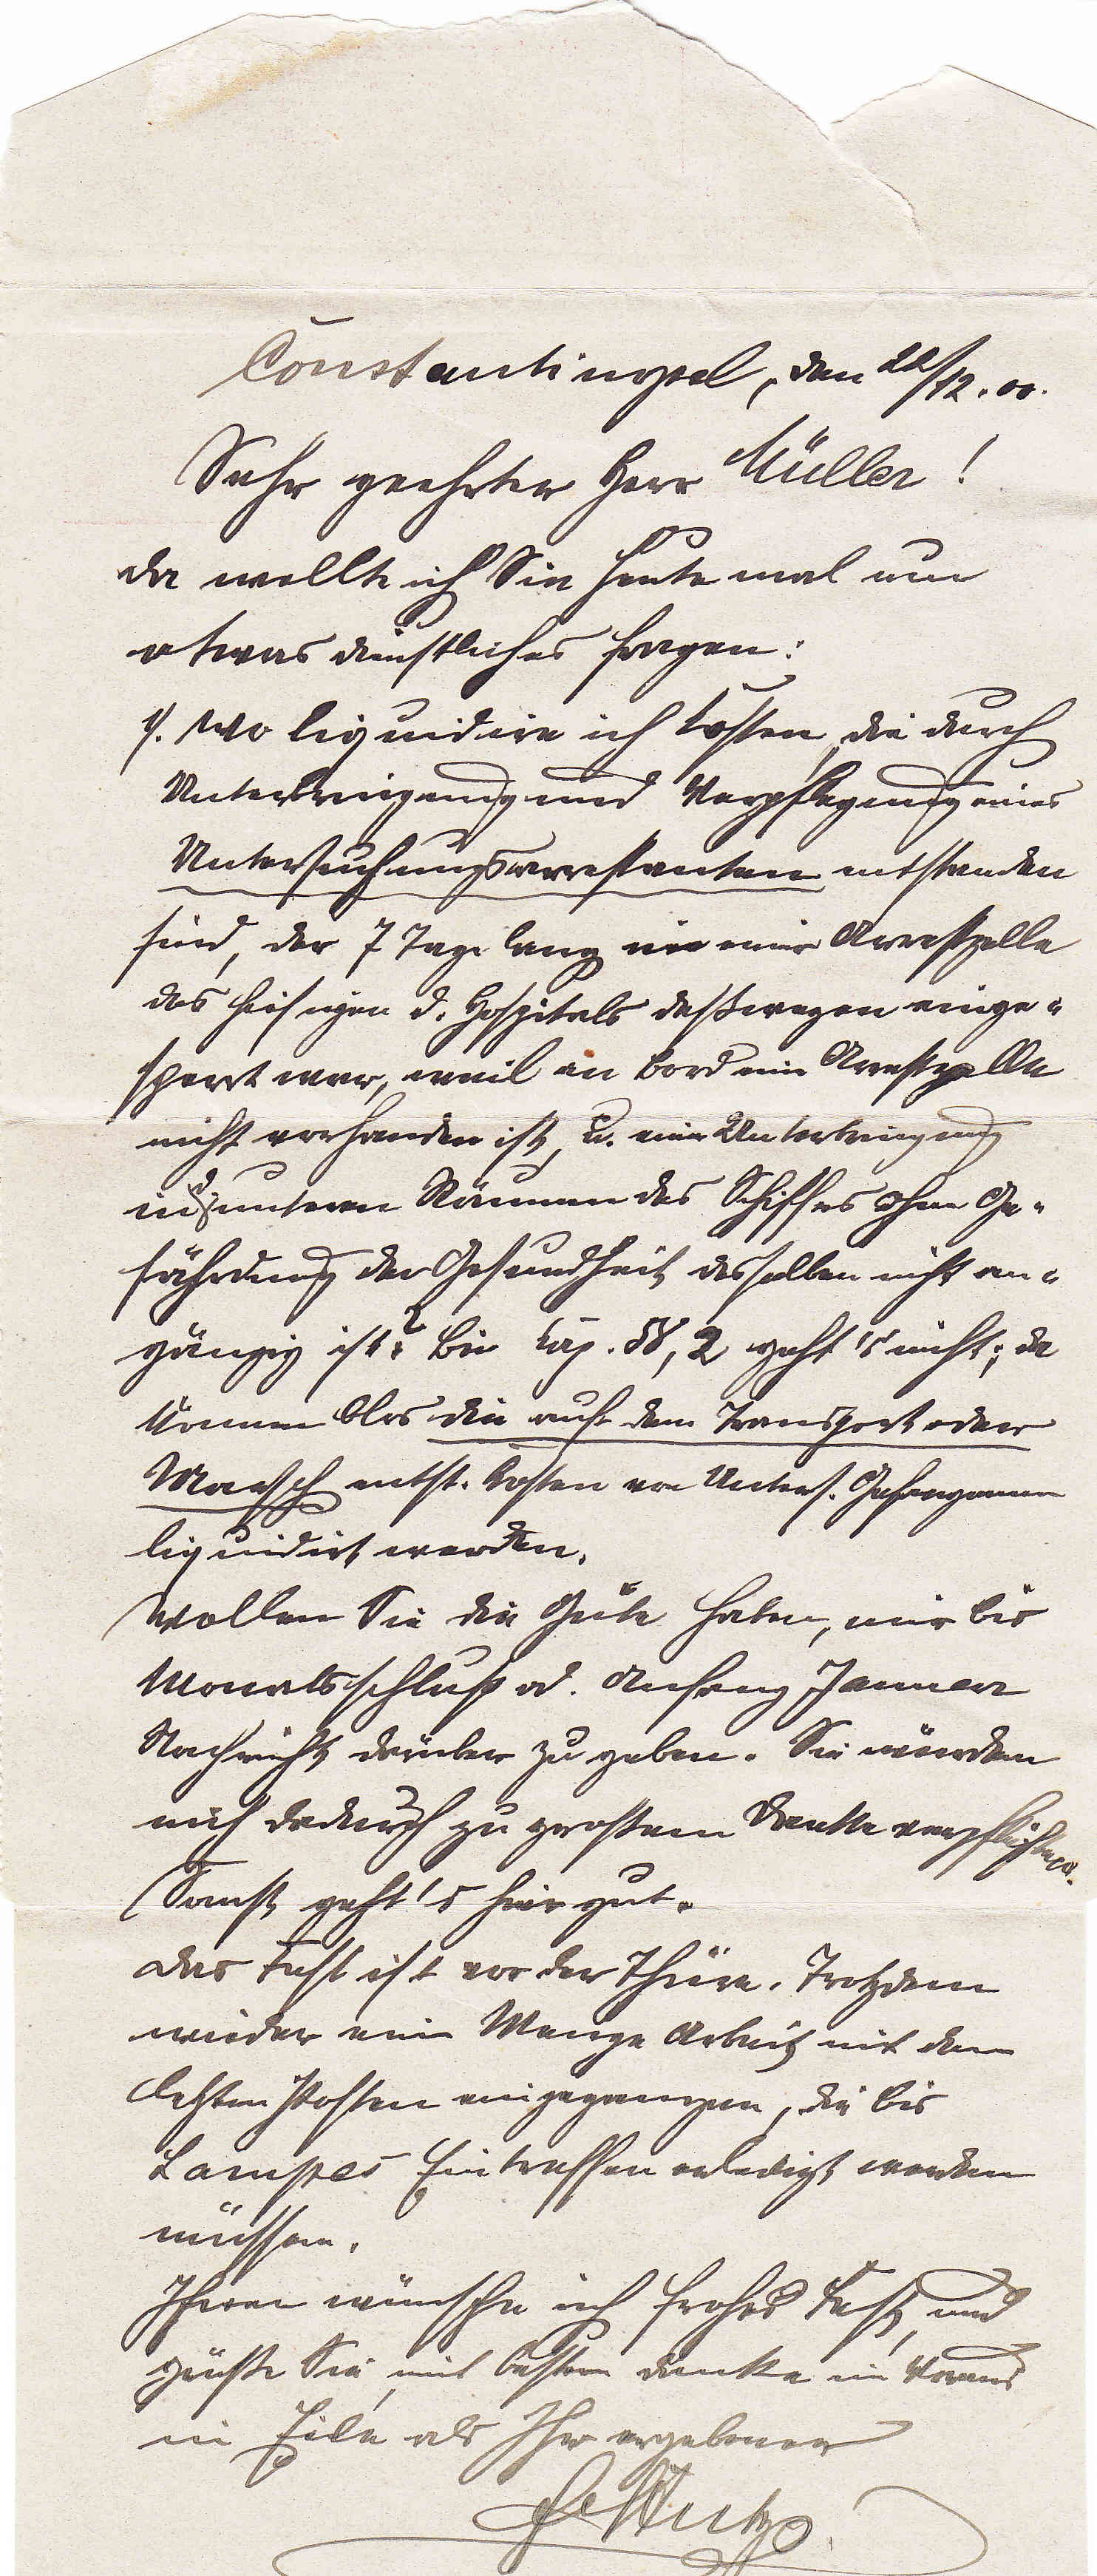 Constantinopel, den 22/12.00.
Sehr geehrter Herr Müller!
da wollte ich Sie heute mal um
etwas dienstliches fragen:
1). Wo liquidire ich Kosten, die durch
Unterbringung und Verpflegung eines
Untersuchungsarrestanten entstanden
sind, der 7 Tage lang in einer Arrestzelle
des hiesigen d. Hospitals deßwegen einge-
sperrt war, weil an Bord eine Arrestzelle
nicht vorhanden ist, u. eine Unterbringung
in d. unteren Räumen des Schiffes ohne Ge-
fährdung der Gesundheit desselben nicht an-
gängig ist? Bei Cap. 58, 2 geht's nicht; da
können blos die auf dem Transport oder
Marsch entst. Kosten von Unters. Gefangenen
liquidirt werden.
Wollen Sie die Güte haben, mir bis
Monatsschluß od. Anfang Januar
Nachricht darüber zu geben. Sie würden
mich dadurch zu großem Danke verpflichten.
Sonst geht's hier gut.
Das Fest ist vor der Thüre. Trotzdem
wieder eine Menge Arbeit mit den
letzten Posten eingegangen, die bis
Lampes Eintreffen erledigt werden
müssen.
Ihnen wünsche ich frohes Fest, und
grüße Sie, mit bestem Danke im Voraus
in Eile als Ihr ergebener